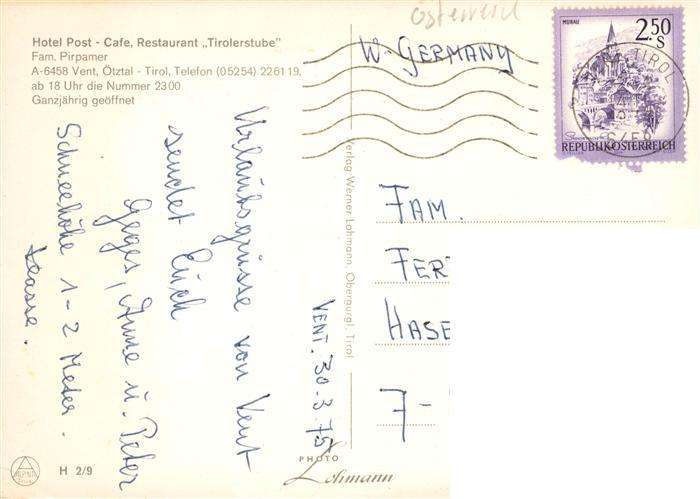 Österreich
Hotel Post - Cafe, Restaurant „Tirolerstube"
Fam. Pirpamer
A-6458 Vent, Ötztal - Tirol, Telefon (05254) 2261 19,
ab 18 Uhr die Nummer 2300
Ganzjährig geöffnet
W. GERMANY
MURAU
2.50
S
REPUBLIK ÖSTERREICH
TIROL
Urlaubsgrüsse von Vent
sendet Euch
Anne u. Peter
Schneehöhe 1-2 Meter.
Klasse.
VENT. 30.3.75
Verlag Werner Lohmann, Obergurgl, Tirol
FAM.
FER
HASE
7-
PHOTO
Lohmann
H 2/9